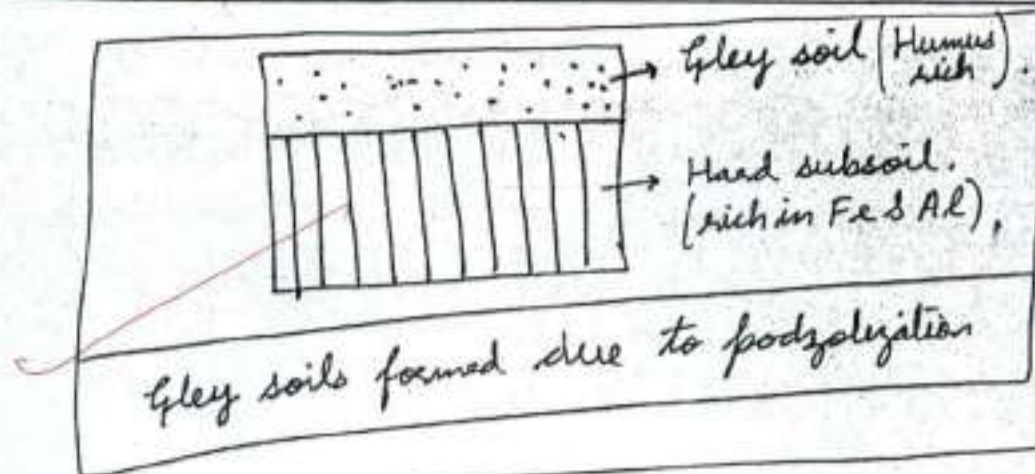 Gley soil (Humus
rich).
Hard subsoil.
(rich in Fe & Al),
Gley soils formed due to podzolization